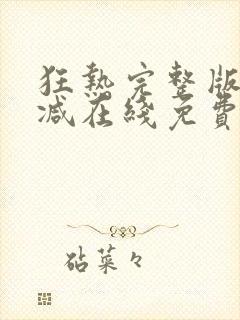 狂熱完整版
減在綫免費
砧菜々